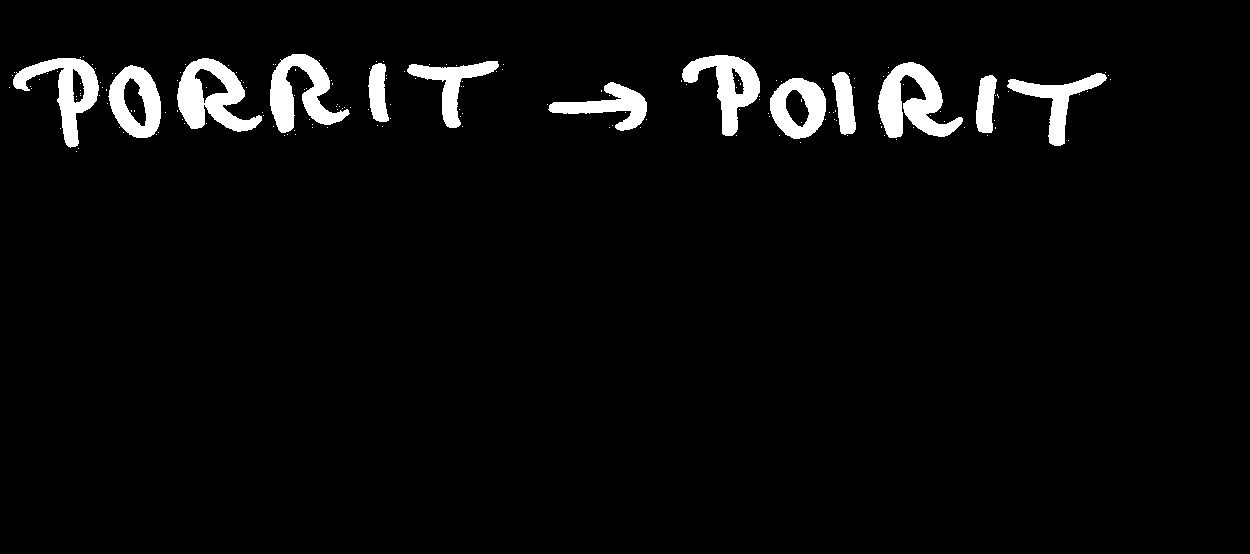 PORRIT → POIRIT